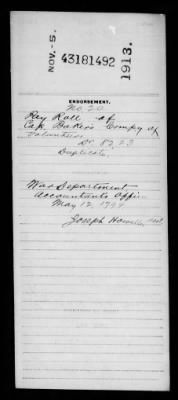 NOV.-5.
43181492
1913.
ENDORSEMENT.
No. 20
Pay Roll of
Cap. Baker's Compy of
Volunteers
Dr. 82,23
Duplicate.
War Department
Accountants Office
May 12, 1794
Joseph Howell